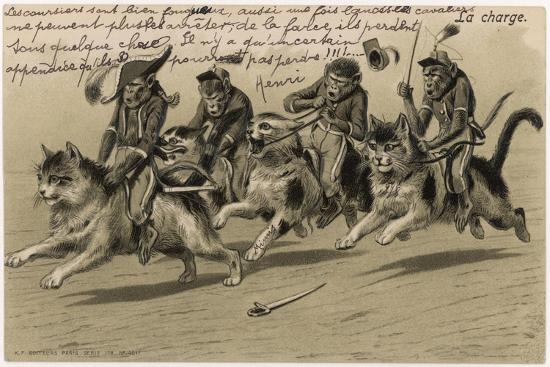 La charge.
Les coursiers sont bien fougueux, aussi une fois lancés les cavaliers
ne peuvent plus les arrêter, de la farce, ils perdent
tous quelque chose Il n'y a qu'un certain
appendice qu'ils pourront pas perdre!!!
Henri
K.F. EDITEURS PARIS. SERIE